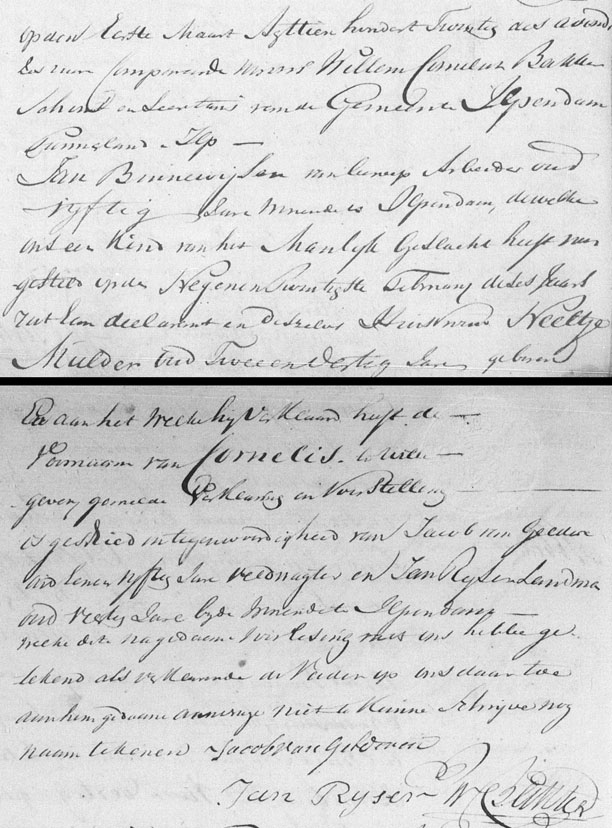 op den Eerste Maart Agttien hondert Twintig des avonds
Ses uure Compareerde voor ons Willem Cornelisz Bakker
Schout en Secretaris van de Gemeente Ilpendam
Purmerland Ilp —
Jan Binnewijsen van beroep Arbeider oud
vyftig Jare woonende te Ilpendam, dewelke
ons een Kind van het Manlijk Geslacht heeft voor
gesteld op den Negenentwintigste February deses Jaars
van hem declarant en deszelvs Huisvrouw Neeltje
Mulder oud Twee en Dertig Jare geboren
En aan het Welke hij verklaard heeft de —
Voornaam van Cornelis te wille —
geven, gemelde Verklaaring en Voorstelling —
is geschied in tegenwoordigheid van Jacob van Geldere
oud vyftig Jare veldwagter en Jan Ryser Landman
oud veertig Jare beyde woonende te Ilpendam —
welke dete na gedaane voorlesing met ons hebbe ge
tekend als verklarende de Vader op ons daar toe
aan hem gedaane aanvraage niet te kunne schrijve nog
naam tekenen Jacob van Gelderen
Jan Ryser W C Bakker